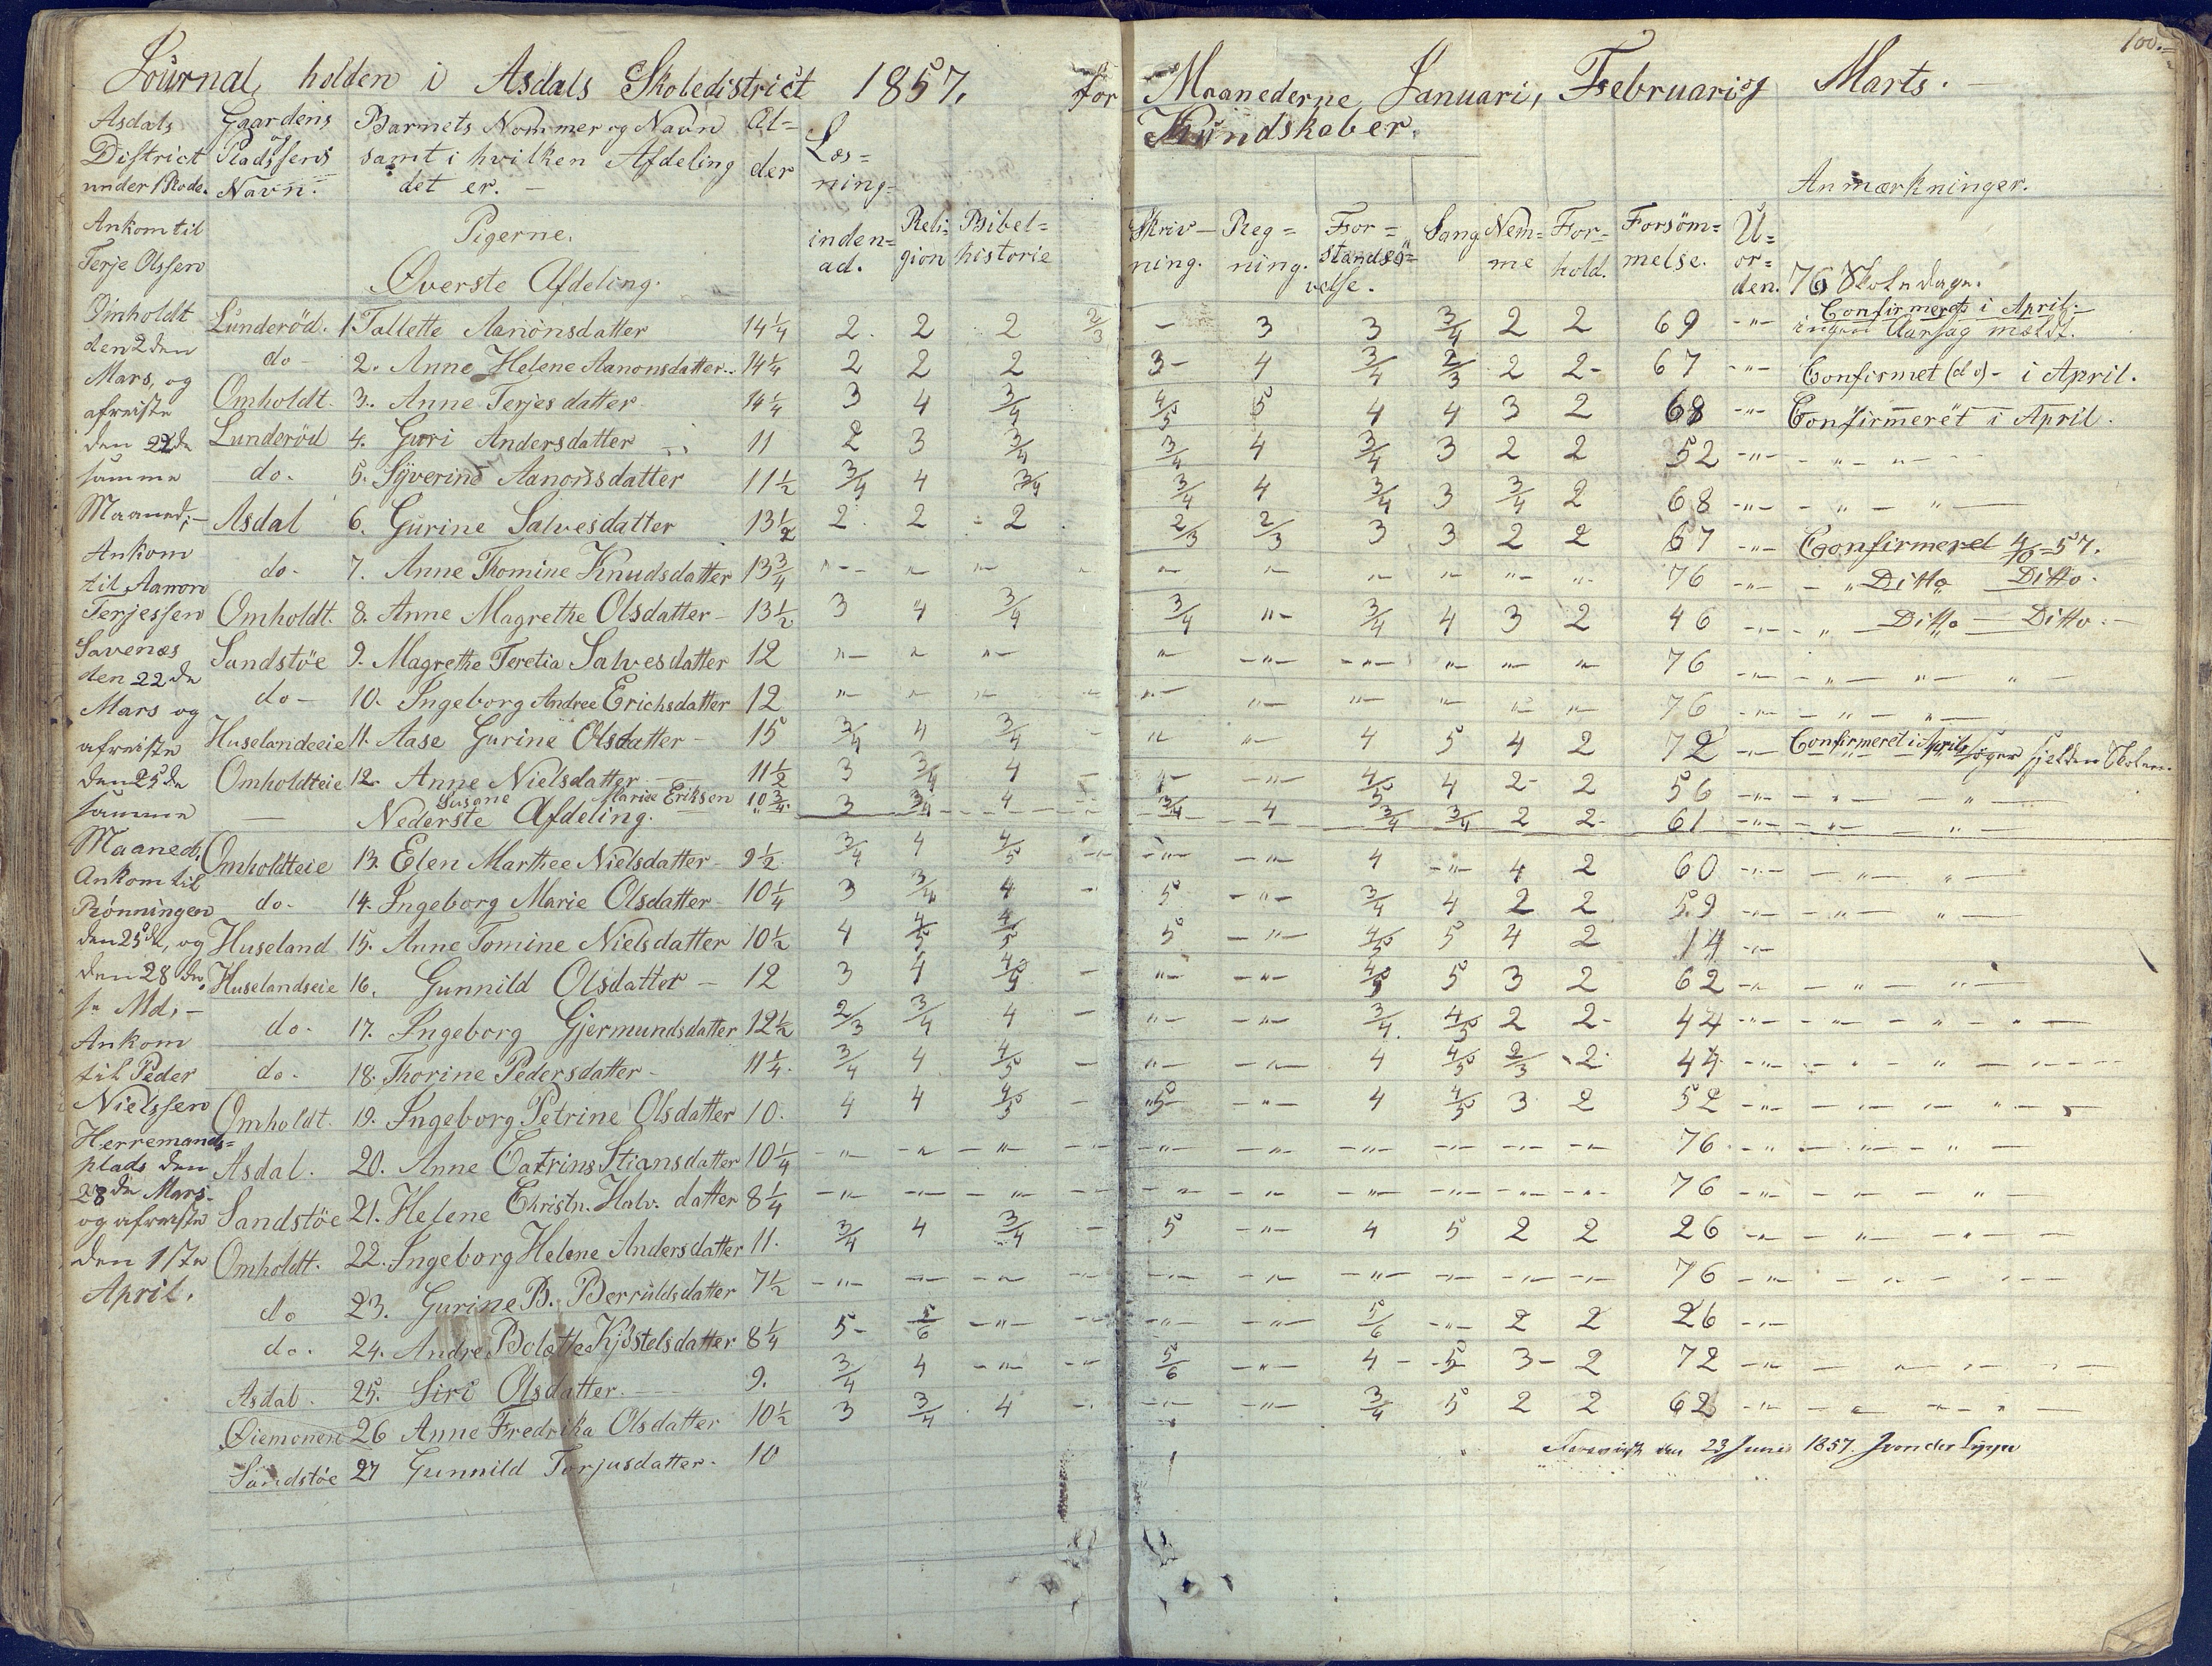 100.=
Journal, holden i Asdals Skoledistrict 1857, for Maanederne Januari, Februari og Marts. —
Kundskaber.
Asdals District under 1 Rode.
Gaardens og Pladssens Navn.
Barnets Nommer og Navn samt i hvilken Afdeling det er. —
Al= der
Læs= ning= inden= ad.
Reli= gion
Bibel= historie
Skriv— ning.
Reg= ning.
For= standsö= velse.
Sang
Nem= me
For= hold.
Forsöm= melse.
U= or= den.
Anmærkninger.
76 Skoledage.
Pigerne.
Øverste Afdeling.
Lunderöd. 1. Tallette Aanonsdatter 14 1/4 2. 2 2 2/3 – 3 3 3/4 2 2 69 -"- Confirmeret i April. ingen Aarsag mældt.
do — 2. Anne Helene Aanonsdatter.. 14 1/4 2 2 2 3- 4 3/4 2/3 2 2- 67 -"- Confirmet (do) - i April.
Omholdt. 3. Anne Terjesdatter 14 1/4 3 4 3/4 4/5 5 4 4 3 2 68 -"- Confirmeret i April.
Lunderöd 4. Guri Andersdatter 11 2 3 3/4 3/4 4 3/4 3 2 2 52 -"- - " - " -
do. 5. Syverine Aanonsdatter 11 1/2 3/4 4 3/4 3/4 4 3/4 3 3/4 2 68 -"- - " - " —
Asdal 6. Gurine Salvesdatter 13 1/2 2. 2 - 2 2/3 2/3 3 3 2 2 67 -"- Confirmeret 4/10-57.
do- 7. Anne Thomine Knudsdatter 13 3/4 "- " " " " " " " " " 76 -"- - " Ditto Ditto.
Omholdt. 8. Anne Magrethe Olsdatter — 13 1/2 3 4 3/4 3/4 "- 3/4 4 3 2 46 -"- " Ditto — Ditto. —
Sandstöe 9. Magrethe Teretia Salvesdatter 12 "- " "- " -"- -"- " " " 76 -"- - " — " — " -
do- 10. Ingeborg Andree Erichsdatter 12 " " " " " " " " " 76 -"- - " - " —
Huselandeeie 11. Aase Gurine Olsdatter — 15 3/4 4 3/4 - " " 4 5 4 2 72 -"- Confirmeret i April, söger sjelden Skolen.
Omholdteie 12. Anne Nielsdatter — 11 1/2 3 3/4 4 - 4- -"- 4/5 4 2- 2 56 -"- - " - " —
Susane Mariee Eriksen 10 3/4. 3 3/4 4 3/4 4 3/4 3/4 2 2- 61 -"- - " - " -
Nederste Afdeling.
Omholdteie 13. Elen Marthee Nielsdatter — 9 1/2 3/4 4 4/5 -"- -"- 4 -"- 4 2 60 -"- - " - " —
do- 14. Ingeborg Marie Olsdatter 10 1/4 3 3/4 4 - 5 -"- 3/4 4 2 2 59 -"- - " — " —
Huseland 15. Anne Tomine Nielsdatter 10 1/2 4 4/5 4/5 5 -"- 4/5 5 4 2 14 -"-
Huselandseie 16. Gunnild Olsdatter — 12 3 4 4/5 - "- -"- 4/5 5 3 2 62 -"- - " - " —
do- 17. Ingeborg Gjermundsdatter 12 1/2 2/3 3/4 4 - "- -"- 3/4 4/5 2 2- 44 -"- - " - " - " —
do- 18. Thorine Pedersdatter — 11 1/4. 3/4 4 4/5 - "- -"- 4 4/5 2/3 2. 44 -"- - " - " - "
Omholdt. 19. Ingeborg Petrine Olsdatter 10. 4 4 4/5 - 5 -"- 4 4/5 3 2 52 -"- - " - " - " -
Asdal. 20. Anne Catrine Stiansdatter 10 1/4 -"- -"- -"- -"- -"- -"- -"- -"- -"- 76. -"- - " - " -
Sandstöe 21. Helene Christn. Halv. datter 8 1/4 -"- -"- -"- -"- -"- -"- -"- -"- -"- 76 -"- - " - " -
Omholdt. 22. Ingeborg Helene Andersdatter 11. 3/4 4 3/4 - 5 -"- 4 5 2 2 26 -"- - " - " -
do 23. Gurine B. Berruldsdatter 7 1/2 -"- -"- -"- -"- -"- -"- -"- -"- -"- 76 -"- - " - " -
do. 24. Andre Bolette Kjöstelsdatter 8 1/4 5- 5/6 -"- -"- -"- 5/6 -"- 2 2 26 -"-
Asdal. 25. Siri Olsdatter. — 9. 3/4 4 -"- -"- 5/6 -"- 4- 5 3- 2 72 -"- - " - " -
Øiemonen 26 Anne Fredrika Olsdatter 10 1/2 3 3/4 4 -"- -"- -"- 3/4 5 2 2 62 -"- - " - " -
Sandstöe 27 Gunnild Torjusdatter. 10
den 23 Juni 1857. J von der Lippe
Ankom til
Terje Olssen
Omholdt
den 2den
Mars, og
afreiste
den 22de
samme
Maaned; —
Ankom
til Aanon
Terjessen
Savenæs
den 22de
Mars og
afreiste
den 25de
samme
Maaned;
Ankom til
Rönningen
den 25de, og
den 28de
s. Md; —
Ankom
til Peder
Nielssen
Herremands=
plads den
28de Mars-
og afreiste
den 1ste
April.